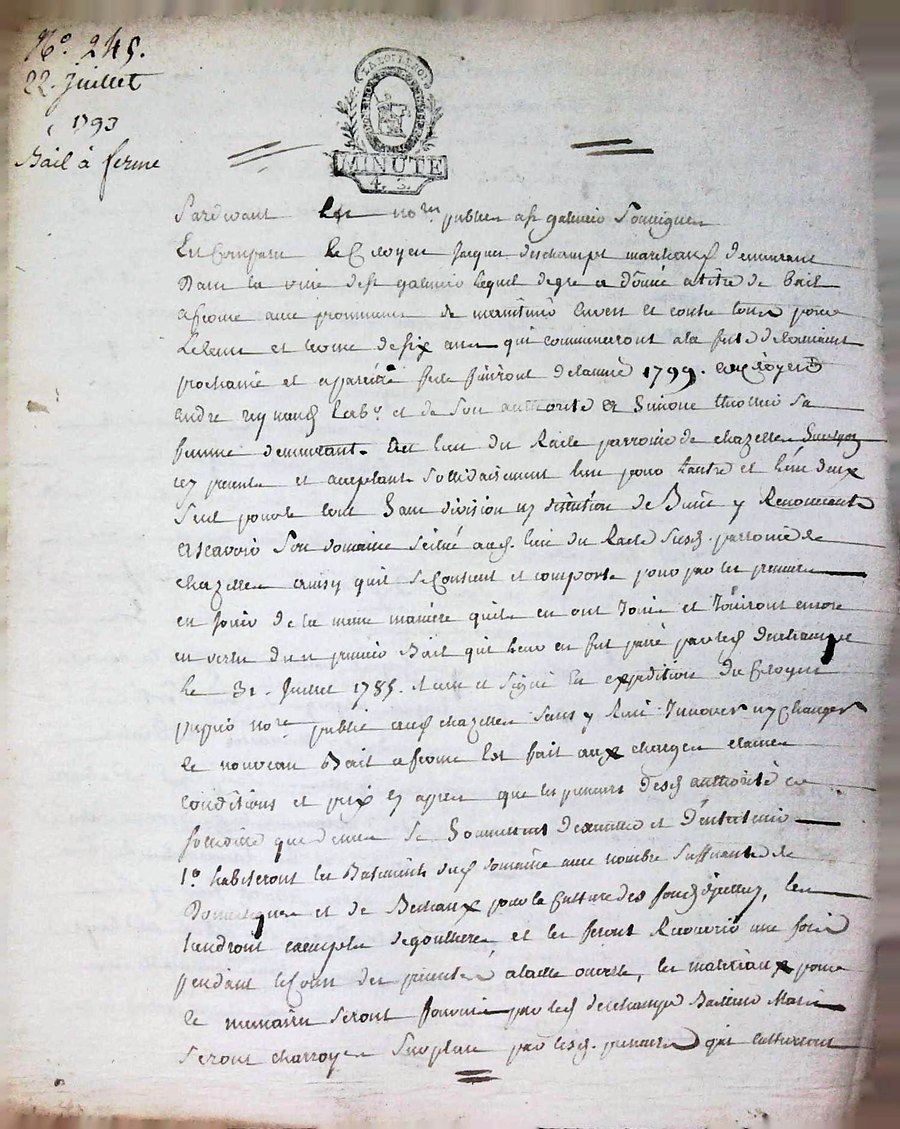 N.º 245.
22. Juillet
1793
Bail à ferme
LA LOI LE ROI
MINUTE
4. S.
Pardevant les no.res publics a st galmier soussignes
Est Comparu le Citoyen Jacques deschamps marchand demeurant
Dans la ville de st galmier lequel de gré a dônné a titre de bail
a ferme avec promesse de maintenir envers et contre tous pour
Le temps et terme de six années qui commenceront a la fete de
prochaine et a pareille fete finiront de lannée 1799. aux Citoyens
andre lab.r et de son authorité Simone sa
femme demeurant au lieu du Racle parroisse de chazelles
icy presents et acceptants sollidairement lun pour lautre et lun deux
seul pour le tout sans division ny de Biens y Renonceant
scavoir son domaine scitué aud. lieu du Racle susd. parroisse de
chazelles ainsy quil se Contient et comporte pour par les preneurs
en jouir de la meme maniere quils en ont Joui et Jouiront encore
en vertu dun premier Bail qui leur en fut passé par led deschamps
le 31. Juillet 1785. et signé En expedition du Citoyen
no.re public aud chazelles sans y Rien Innover ny Changer
le nouveau Bail a ferme Est fait aux charges clauses
conditions et prix cy apres que les preneurs desd authorité et
sollidité que dessus se Soummettent dexecuter et Dentretenir
1.º habiteront les Batiments dud domaine avec nombre suffisants de
Domestiques et de Bestiaux pour la Culture des fonds dicelluy, les
tiendront exempts de goutieres et les feront Recouvrir une fois
pendant le Cours des presentes a taille ouverte, les materiaux pour
ce necessaires seront fournis par led deschamps Bailleur Mais
seront charroyes sur place par lesd. preneurs qui